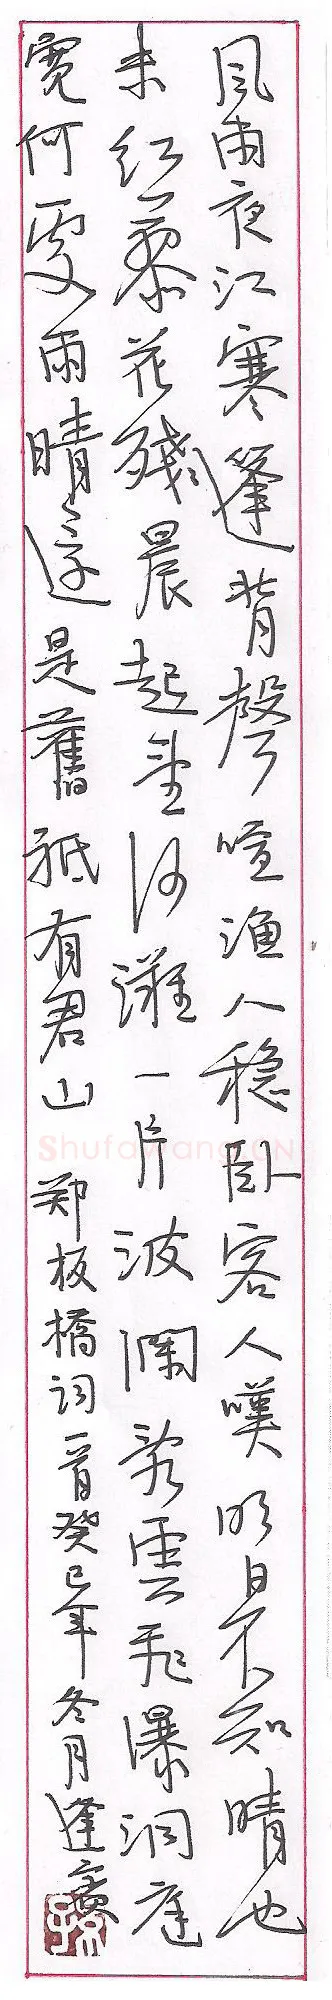 风雨夜江寒篷背聲喧漁人稳卧客人嘆明日不知晴也
未红蓼花殘晨起望沙灘一片波瀾乱雲飛瀑洞庭
寬何處雨晴還是舊祇有君山 郑板橋词一首癸巳年冬月逢
Shufawang.CN